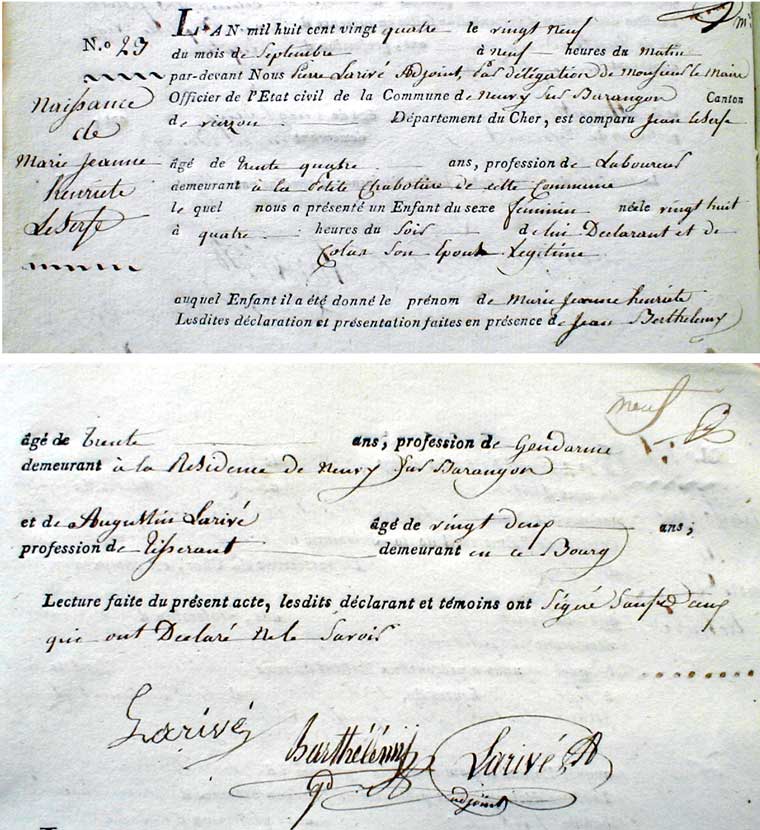 N.o 29
Naissance
de
Marie Jeanne
henriete
LeSerfe
L'AN mil huit cent vingt quatre le vingt neuf
du mois de Septembre à neuf heures du matin
par-devant Nous Pierre Larivé Adjoint, par délégation de Monsieur le Maire
Officier de l'Etat civil de la Commune de Neuvy sur Barangon Canton
de vierzon Département du Cher, est comparu Jean leSerfe
âgé de trente quatre ans, profession de Laboureur
demeurant à la petite Chabotiere de cette Commune
le quel nous a présenté un Enfant du sexe feminin né le vingt huit
à quatre heures du Soir de lui Declarant et de
Colas Son Epouse Legitime
auquel Enfant il a été donné le prénom de Marie Jeanne henriete
Lesdites déclaration et présentation faites en présence de Jean Berthelemy
neuf
âgé de trente ans, profession de Gendarme
demeurant à la Residence de neuvy Sur Barangon
et de Augustin Larivé âgé de vingt deux ans;
profession de tisserant demeurant en ce Bourg
Lecture faite du présent acte, lesdits déclarant et témoins ont Signé Sauf d'eux
qui ont Declaré ne le Savoir
Larivé
Barthélémy
gd
Larivé
adjoint